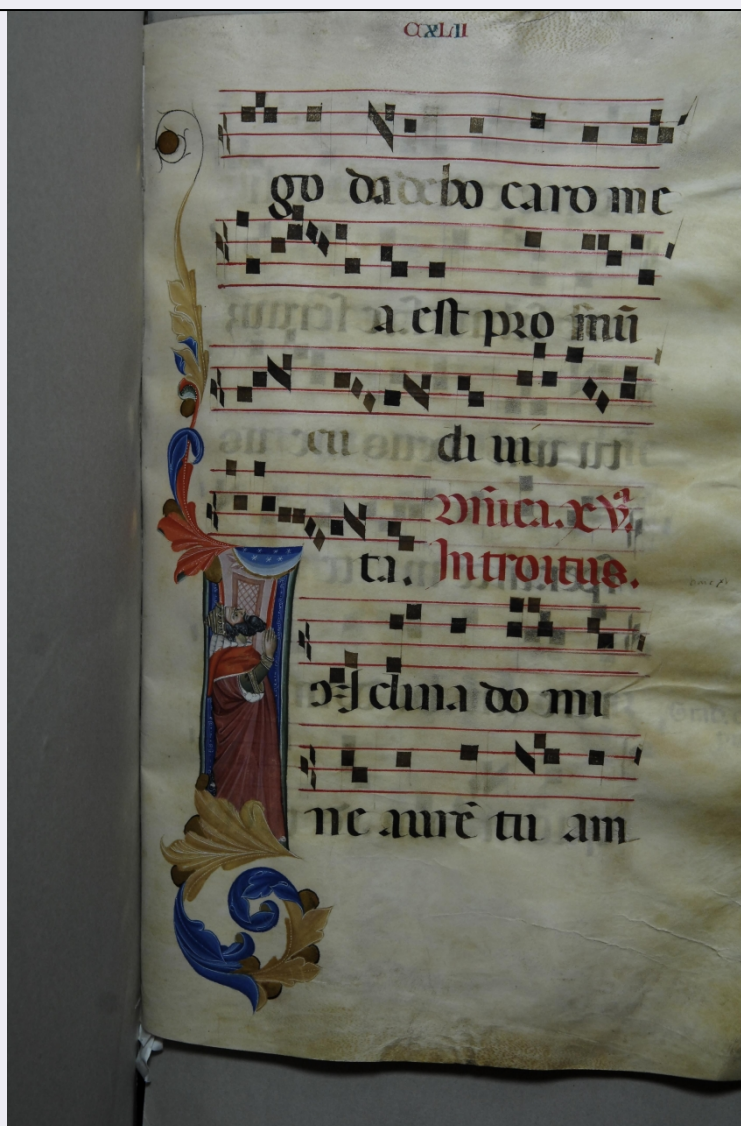 CCXLII
go da debo caro me
a est pro mū
di ui
ta. Dñica. xv.ª
Introitus.
clina do mi
ne aurē tu am